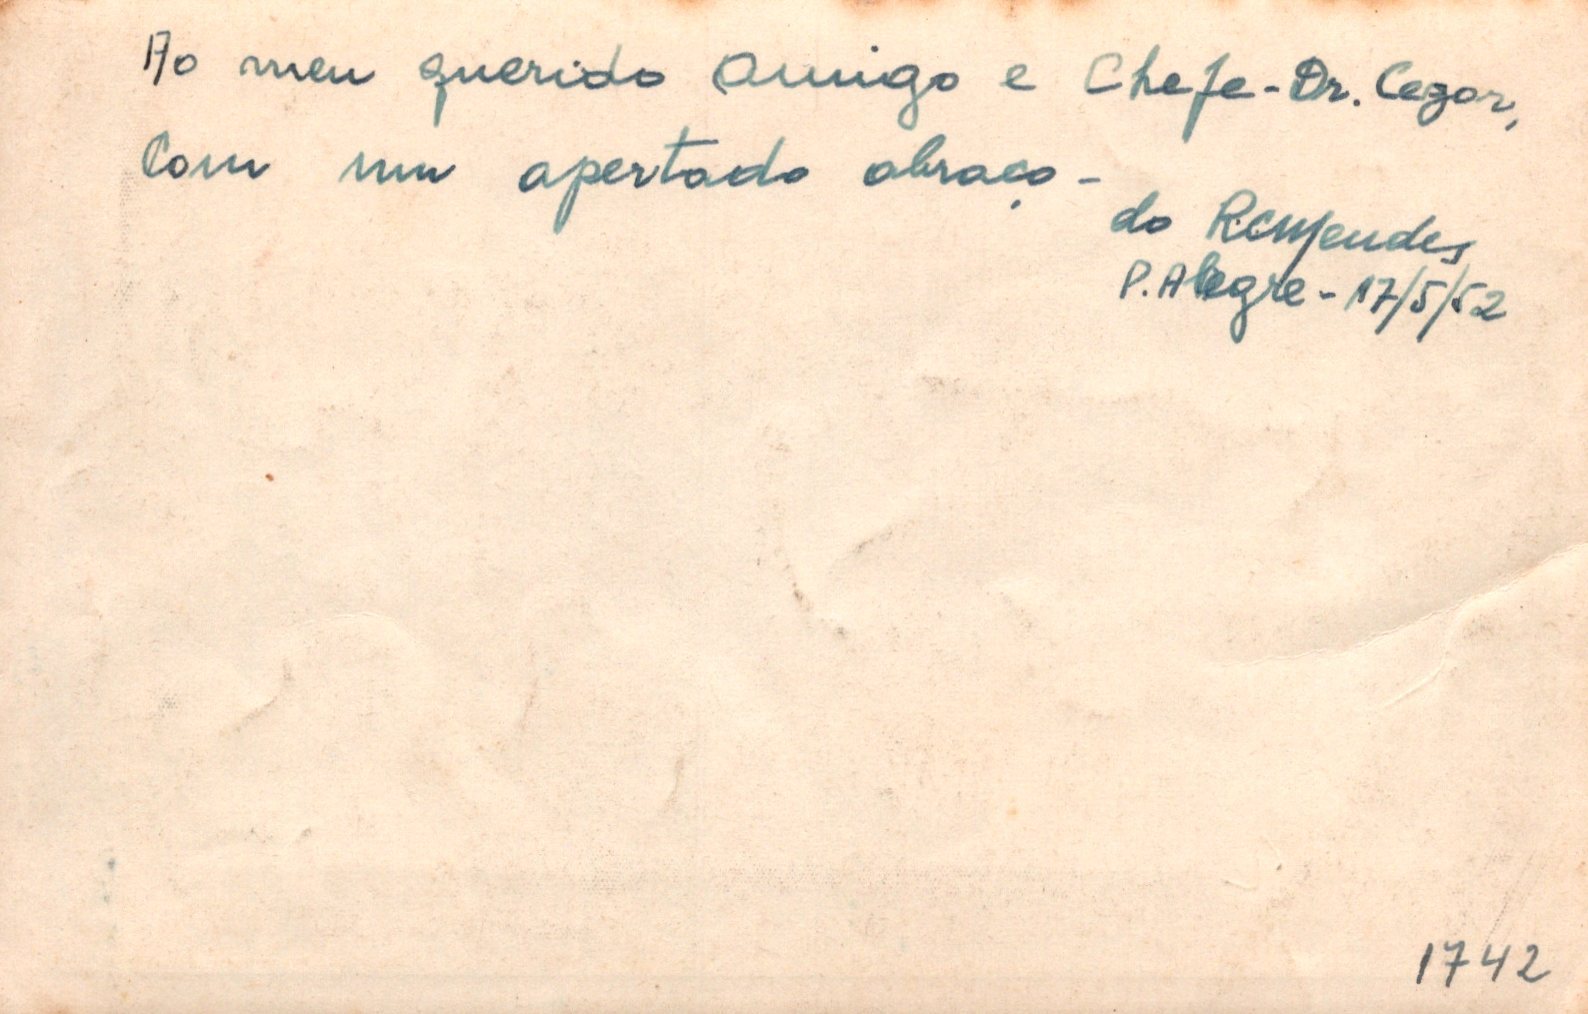 Ao meu querido Amigo e Chefe - Dr. Cezar,
Com um apertado abraço -
do R.C.Mendes
P. Alegre - 17/5/52
1742